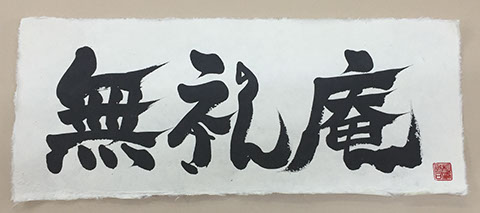 無礼庵